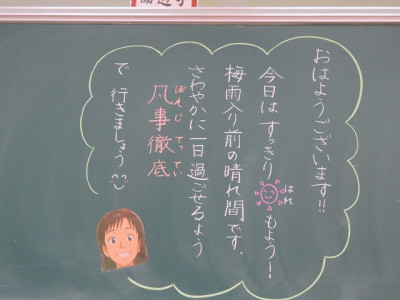 おはようございます!!
今日はすっきりはれもよう!
梅雨入り前の晴れ間です。
さわやかに一日過ごせるよう
凡事徹底
ぼんじてってい
で行きましょう